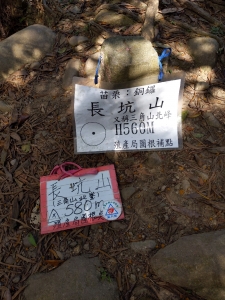 苗栗：銅鑼
長坑山
又稱三角山北峰
H560M
遺產局圖根補點
長坑山
580m